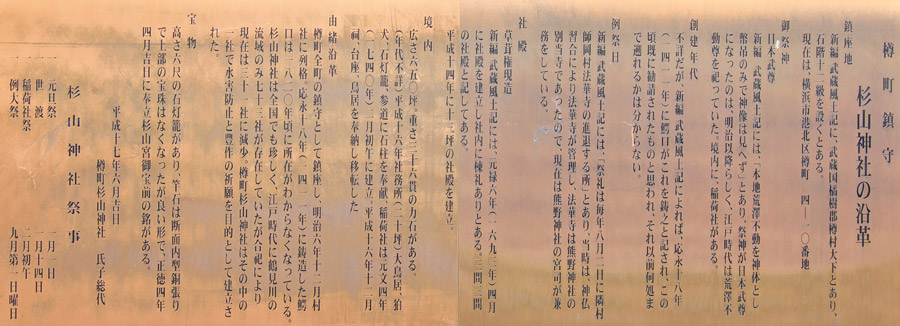 樽町鎮守
杉山神社の沿革
鎮座地
新編武蔵風土記に、武蔵国橘樹郡樽村大下とあり、
石階十二級を設くとある。
現在は、横浜市港北区樽町 四―一〇番地
御祭神
日本武尊
新編 武蔵風土記には、「本地荒澤不動を神体とし
幣帛のみで神像は見へず」とあり、祭神が日本武尊
になったのは、明治以降らしく、江戸時代は荒澤不
動尊を祀っていた。境内に、稲荷社がある。
創建年代
不詳だが、新編武蔵風土記によれば、応永十八年
(一四一一年)に鰐口が「これを鋳之と記され、この
頃既に勧請されたものと思われ、それ以前何処ま
で遡れるかは分らない。
例祭日
新編武蔵風土記には、「祭礼は毎年八月二日に隣村
師岡村法華寺の進退する所」とあり、当時は、神仏
習合により法華寺が管理し、法華寺は熊野神社の
別当寺であったので、現在は熊野神社の宮司が兼
務をしている。
社殿
草葺権現造
新編武蔵風土記には、元禄六年(一六九三年)四月
に社殿を建立し社内に棟札ありとある。三間三間
の社殿と記してある。
平成十四年に十三坪の社殿を建立。
境内
広さ六五〇坪、重さ三十六貫の力石がある。
(年代不詳)平成十六年社務所(二十坪)大鳥居、狛
犬、石灯籠、参道に石柱を奉献、稲荷社は元文四年
(一七四〇年)二月初午に建立、平成十六年十二月
祠、台座、鳥居を奉納し移転した
由緒沿革
樽町全町の鎮守として鎮座し、明治六年十二月村
社に列格、応永十八年(一四一一年)に鋳造した鰐
口は一八二〇年頃に所在がわからなくなっている。
杉山神社は全国でも珍しく、江戸時代に鶴見川の
流域のみ七十三社が存在していたが合祀により
現在は三十一社に減少。樽町杉山神社はその中の
一社で水害防止と豊作の祈願を目的として建立さ
れた。
宝物
高さ六尺の石灯籠があり、竿石は断面内型銅張り
で上部の宝珠はなくなったが良い形で、正徳四年
四月吉日に奉立杉山宮御宝前の銘がある。
平成十七年六月吉日
樽町杉山神社 氏子総代
杉山神社祭事
一 元旦祭 一月一日
一 世渡 一月十四日
一 稲荷社祭 二月初午
一 例大祭 九月第一日曜日